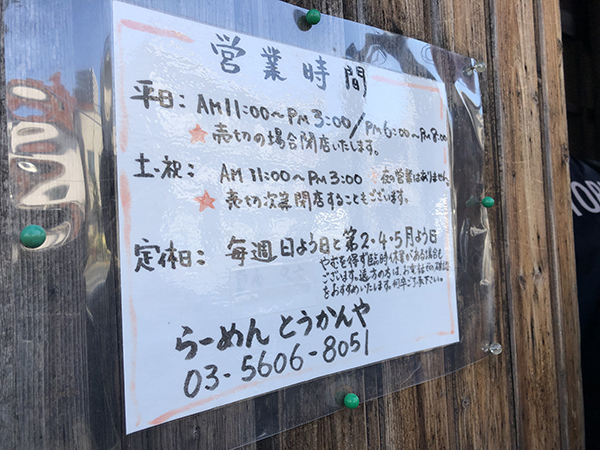 営業時間
平日: AM11:00〜PM3:00/PM6:00〜PM8:00
★売切の場合閉店いたします。
土・祝: AM11:00〜PM3:00 夜の営業はありません。
★売切次第閉店することもございます。
定休日: 毎週日よう日と第2・4・5月よう日
やむを得ず臨時休業がある場合も
ございます。遠方の方は、お電話での確認
をおすすめいたします。何卒ご了承下さい。
らーめん とうかんや
03-5606-8051